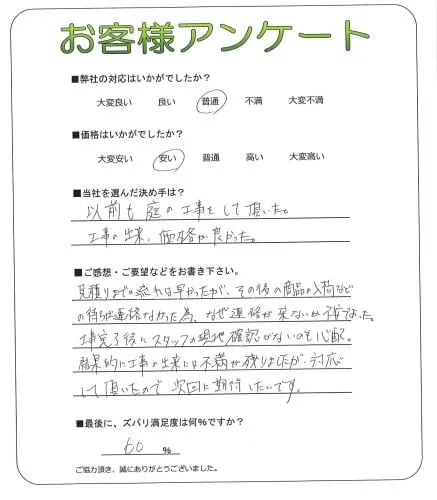 お客様アンケート
■弊社の対応はいかがでしたか？
大変良い 良い 普通 不満 大変不満
■価格はいかがでしたか？
大変安い 安い 普通 高い 大変高い
■当社を選んだ決め手は？
以前も庭の工事をして頂いた。
工事の出来、価格が良かった。
■ご感想・ご要望などをお書き下さい。
見積りまでの流れは早かったが、その後の商品の入荷など
の待ちが連絡なかった為、なぜ連絡が来ないか不安でした。
工事完了後にスタッフの現地確認がないのも心配。
結果的に工事の出来には不満が残りましたが、対応
して頂いたので次回に期待したいです。
■最後に、ズバリ満足度は何%ですか？
60 %
ご協力頂き、誠にありがとうございました。